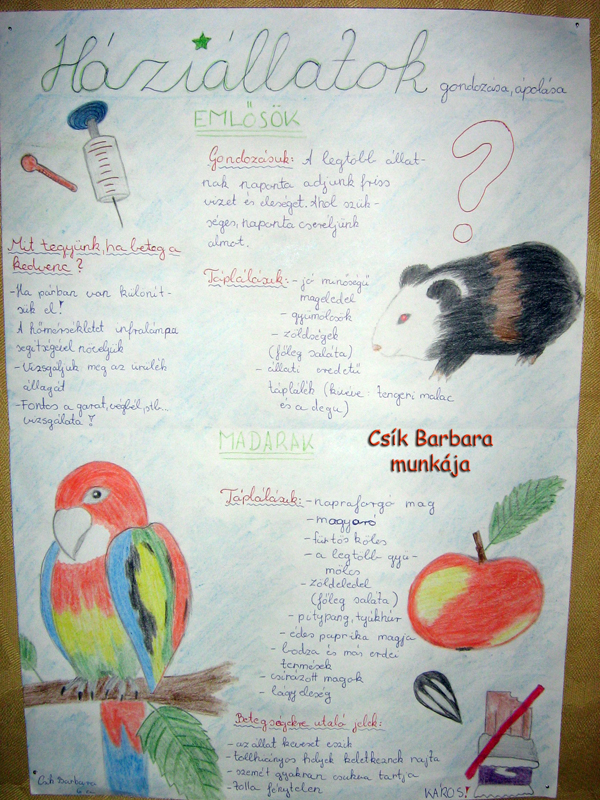 Háziállatok
gondozása, ápolása
EMLŐSÖK
Gondozásuk: A legtöbb állat-
nak naponta adjunk friss
vizet és eleséget. Ahol szük-
séges, naponta cseréljünk
almot.
Mit tegyünk, ha beteg a
kedvenc?
-Ha párban van különít-
sük el!
A hőmérsékletet infralámpa
segítségével növeljük
-Vizsgáljuk meg az ürülék
állagát
-Fontos a garat, végbél, stb...
vizsgálata!
Táplálásuk: - jó minőségű
mageledel
- gyümölcsök
- zöldségek
(főleg saláta)
- állati eredetű
táplálék (kivéve: tengeri malac
és a degu)
MADARAK
Csík Barbara
munkája
Táplálásuk: - napraforgó mag
- mogyoró
- fürtös köles
- a legtöbb gyü-
mölcs
- zöldeledel
(főleg saláta)
- pitypang, tyúkhúr
- édes paprika magja
- bodza és más erdei
termések
- csíráztott magok
- lágyeleség
Betegségekre utaló jelek:
- az állat keveset eszik
- tollhiányos helyek keletkeznek rajta
- szemét gyakran csukva tartja
- tolla fénytelen
KÁROS!
Csík Barbara